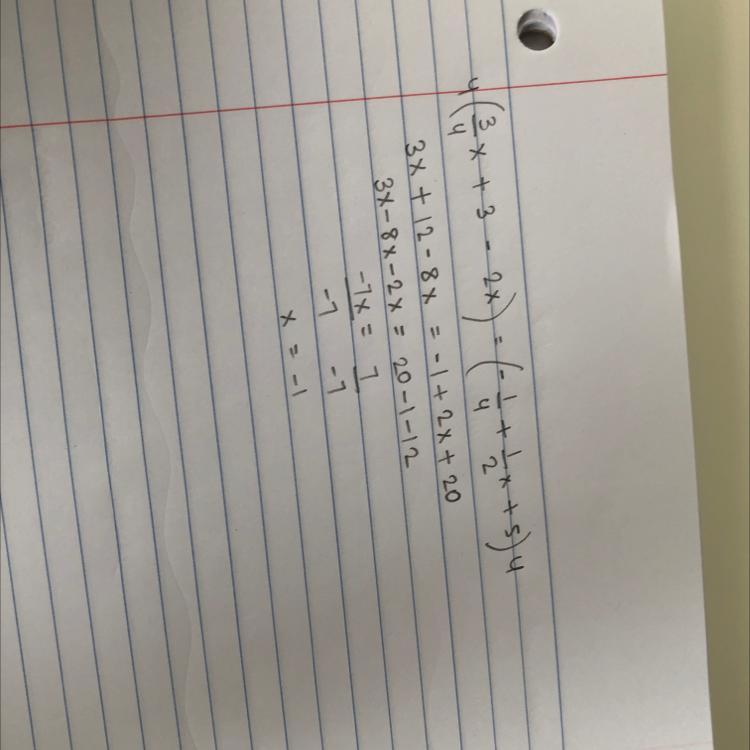 4(3/4 x + 3 - 2x) = (-1/4 + 1/2 x + 5)4
3x + 12 - 8x = -1 + 2x + 20
3x - 8x - 2x = 20 - 1 - 12
-7x = 7
-7 -7
x = -1